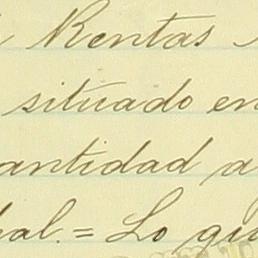 Rentas
situado en
antidad a
al.= Lo qu